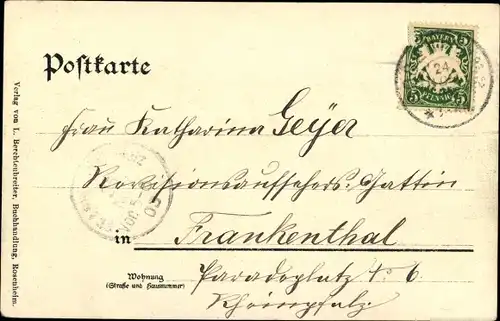 Postkarte
BAYERN
5 5
PFENNIG
24
Frau Katharina Geÿer
Revisionsaufsehers-Gattin
in Frankenthal
Wohnung
(Straße und Hausnummer)
Paradeplatz No 6
Rheinpfalz.
Verlag von L. Berchtenbreiter, Buchhandlung, Rosenheim.